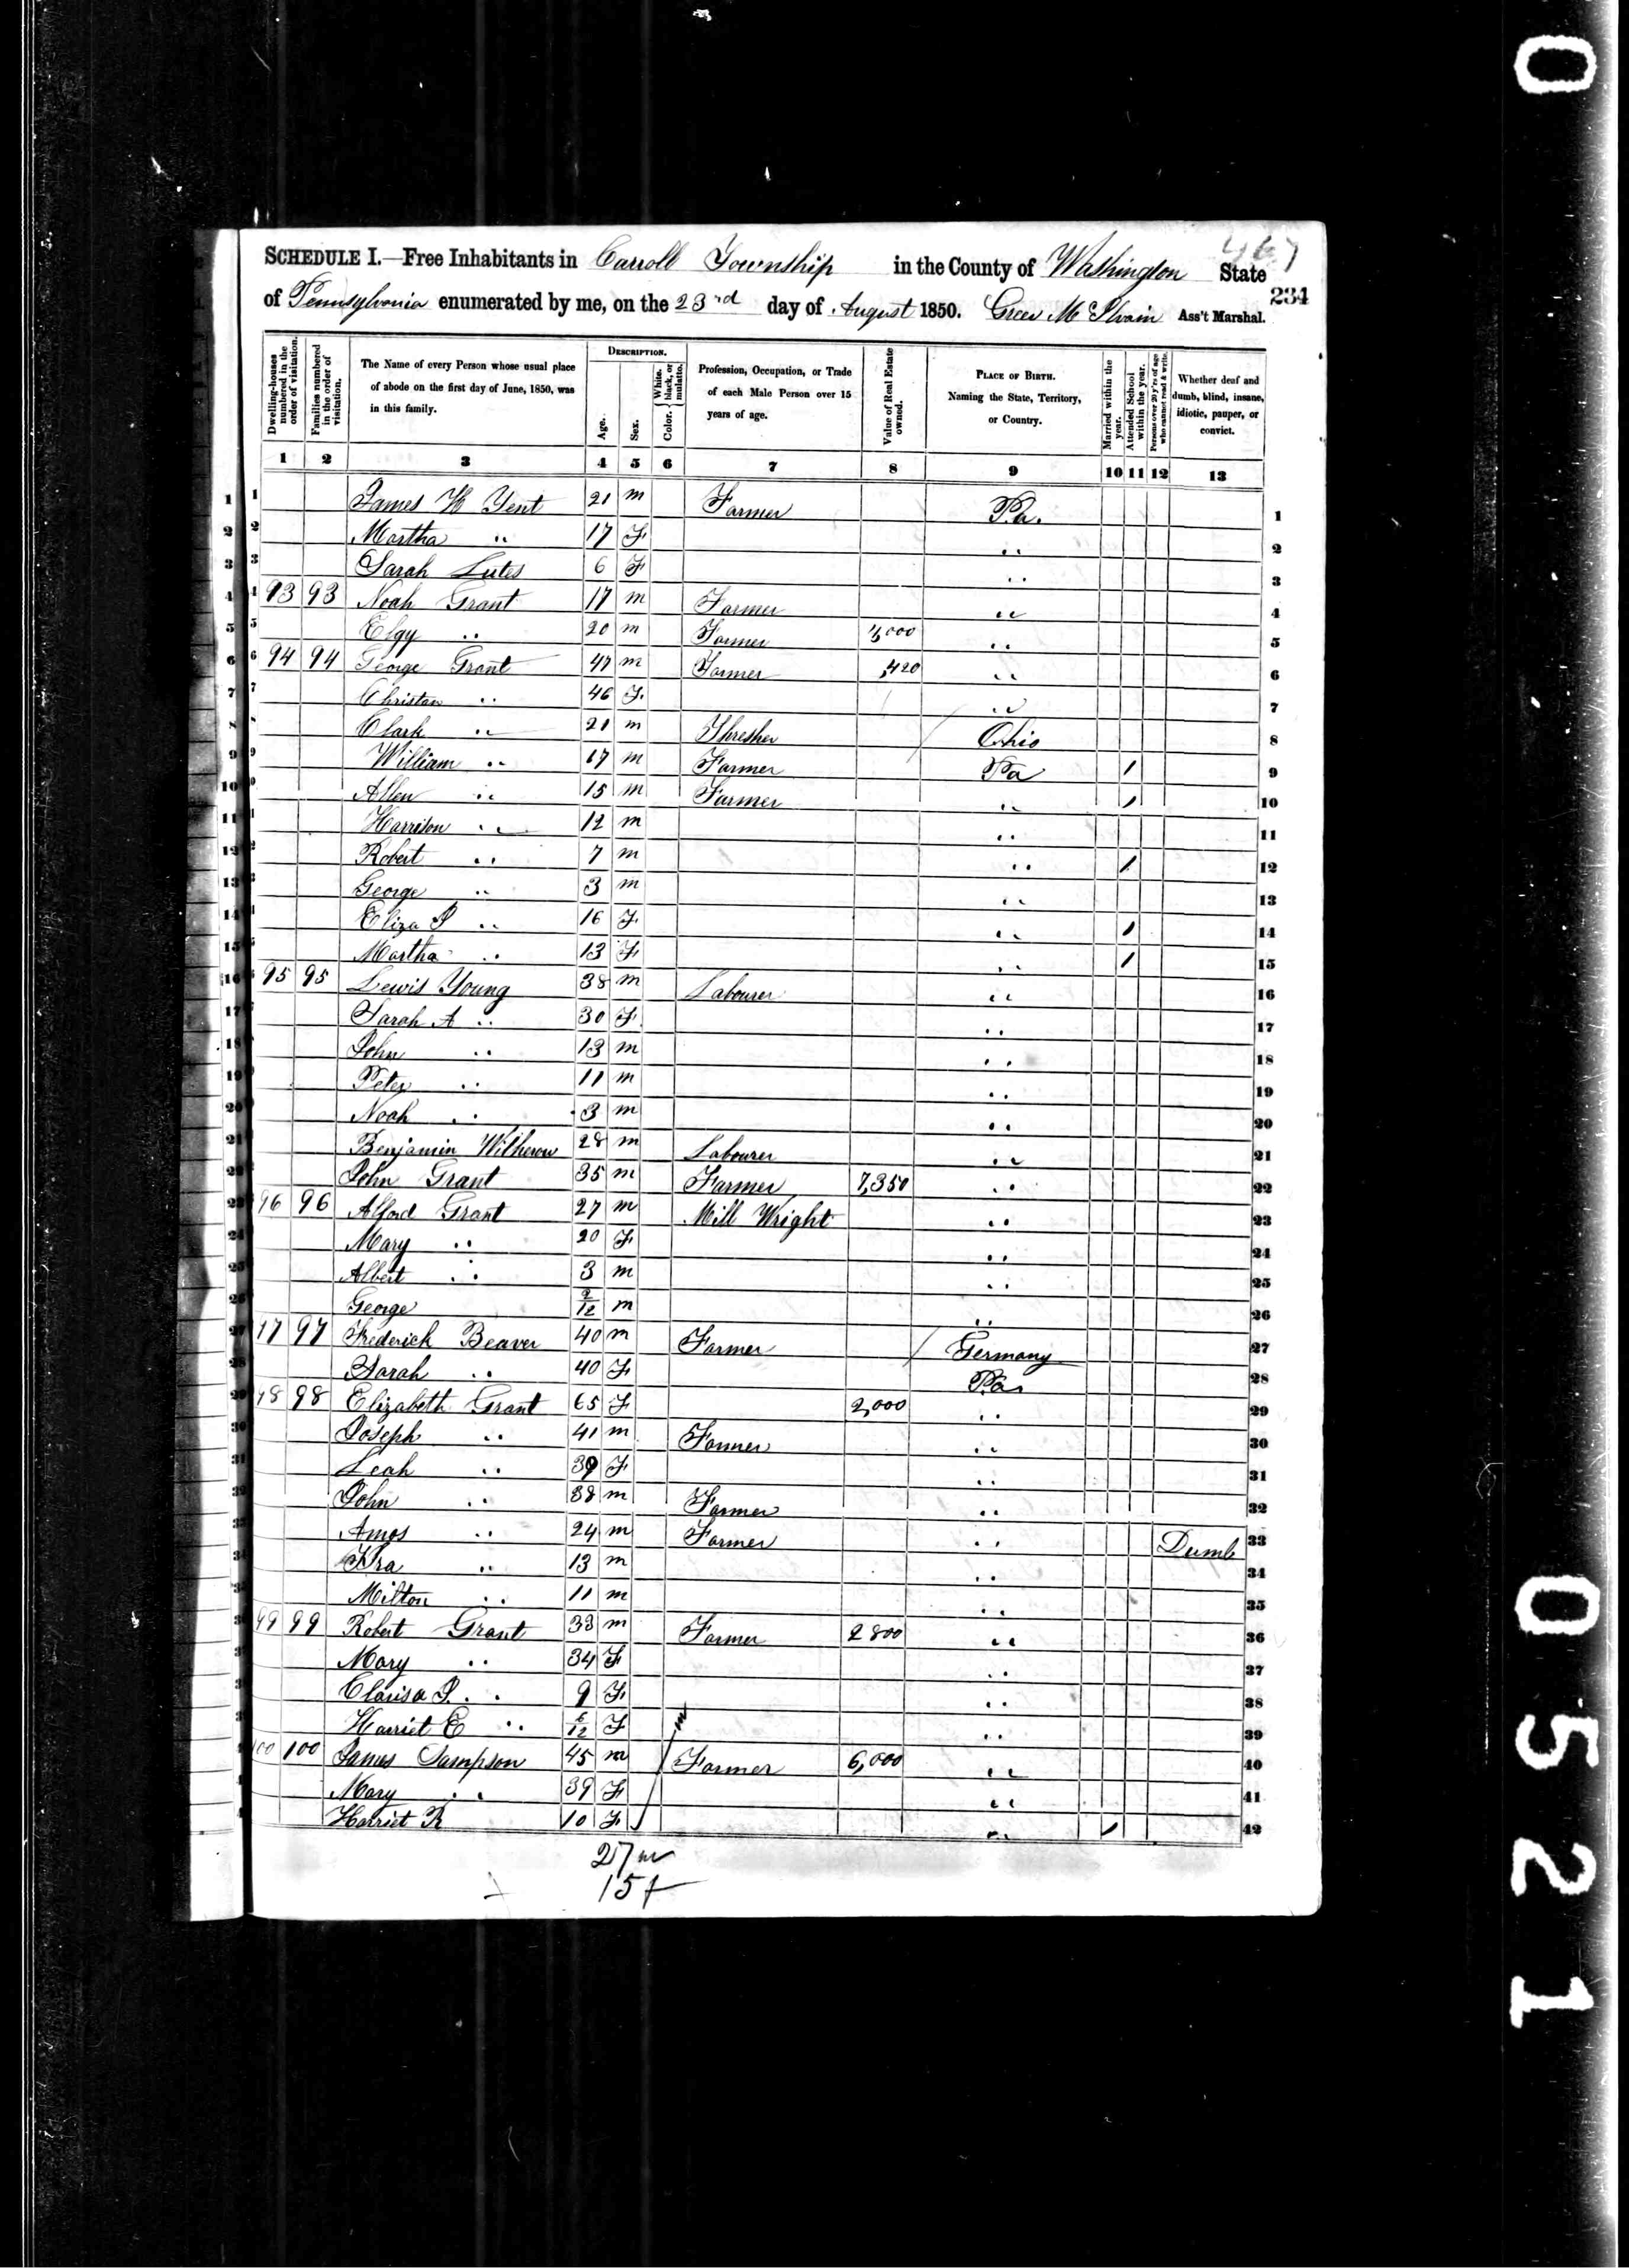 467
SCHEDULE I.—Free Inhabitants in Carroll Township in the County of Washington State
234
of Pennsylvania enumerated by me, on the 23rd day of August 1850. Greer McIlvain Ass't Marshal.
Dwelling-houses numbered in the order of visitation. Families numbered in the order of visitation. The Name of every Person whose usual place of abode on the first day of June, 1850, was in this family. DESCRIPTION. Age. Sex. Color. { White, black, or mulatto. Profession, Occupation, or Trade of each Male Person over 15 years of age. Value of Real Estate owned. PLACE OF BIRTH. Naming the State, Territory, or Country. Married within the year. Attended School within the year. Persons over 20 y'rs of age who cannot read & write. Whether deaf and dumb, blind, insane, idiotic, pauper, or convict.
1 2 3 4 5 6 7 8 9 10 11 12 13
1 1 James H Yent 21 m Farmer Pa. 1
2 2 Martha " 17 F " 2
3 3 Sarah Lutes 6 F " 3
4 4 93 93 Noah Grant 17 m Farmer " 4
5 5 Elgy " 20 m Farmer 4,000 " 5
6 6 94 94 George Grant 47 m Farmer ,420 " 6
7 7 Christan " 46 F. " 7
8 Clark " 21 m Thresher / Ohio 8
9 9 William " 17 m Farmer Pa 1 9
10 Allen " 15 m Farmer " 1 10
11 Harrison " 12 m " 11
12 Robert " 7 m " 1 12
13 George " 3 m " 13
14 Eliza J " 16 F " 1 14
15 Martha " 13 F " 1 15
16 95 95 Lewis Young 38 m Labourer " 16
17 Sarah A " 30 F " 17
18 John " 13 m " 18
19 Peter " 11 m " 19
20 Noah " 3 m " 20
21 Benjamin Witherow 28 m Labourer " 21
22 John Grant 35 m Farmer 7,350 " 22
23 96 96 Alford Grant 27 m Mill Wright " 23
24 Mary " 20 F " 24
25 Albert " 3 m " 25
26 George 2/12 m " 26
27 97 97 Frederick Beaver 40 m Farmer / Germany 27
28 Sarah " 40 F Pa 28
29 98 98 Elizabeth Grant 65 F 2,000 " 29
30 Joseph " 41 m Farmer " 30
31 Leah " 39 F " 31
32 John " 38 m Farmer " 32
Amos " 24 m Farmer " Dumb 33
Ira " 13 m " 34
Milton " 11 m " 35
99 99 Robert Grant 33 m Farmer 2800 " 36
Mary " 34 F " 37
Clarisa J " 9 F " 38
Harriet E " 6/12 F " 39
100 100 James Sampson 45 m Farmer 6,000 " 40
Mary " 39 F " 41
Harriet R 10 F " 1 42
27 m
15 f
0 0521